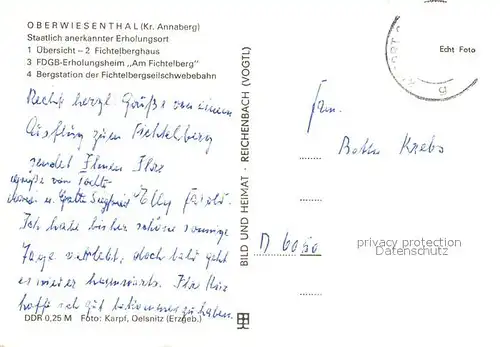 OBERWIESENTHAL (Kr. Annaberg)
Staatlich anerkannter Erholungsort
1 Übersicht – 2 Fichtelberghaus
3 FDGB-Erholungsheim „Am Fichtelberg"
4 Bergstation der Fichtelbergseilschwebebahn
Recht herzl. Grüße von einem
Ausflug zum Fichtelberg
sendet Ihnen Ihre
Grüße von
u. Siegfried Elly
Ich habe bisher schöne sonnige
Tage verlebt, doch bald geht
es wieder heimwärts. Die Kur
hoffe ich gut bekommen zu haben.
DDR 0,25 M Foto: Karpf, Oelsnitz (Erzgeb.)
BILD UND HEIMAT · REICHENBACH (VOGTL)
Echt Foto
Frau
Krebs
D 6060
privacy protection
Datenschutz